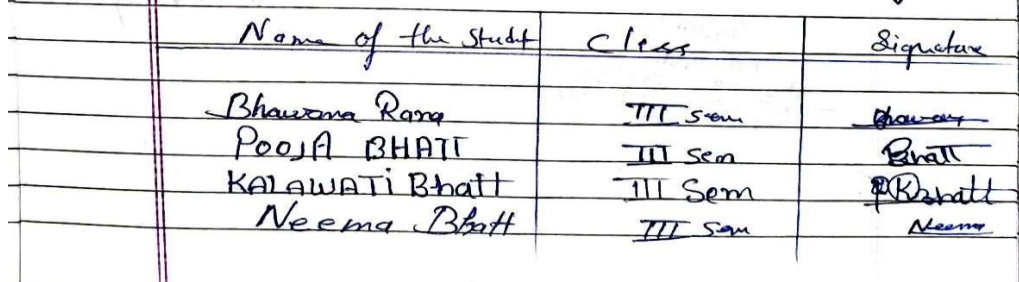 Name of the Studt Class Signature
Bhawana Rana III Sem Bhawana
POOJA BHATT III Sem Bhatt
KALAWATi Bhatt III Sem KBhatt
Neema Bhatt III Sem Neema